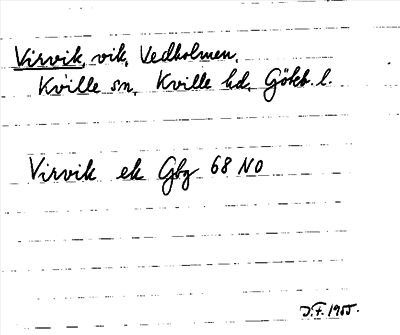 Virvik, vik, Vedholmen,
Kville sn, Kville hd, Göteb. l.
Virvik ek Gbg 68 NO
D.F. 1955.